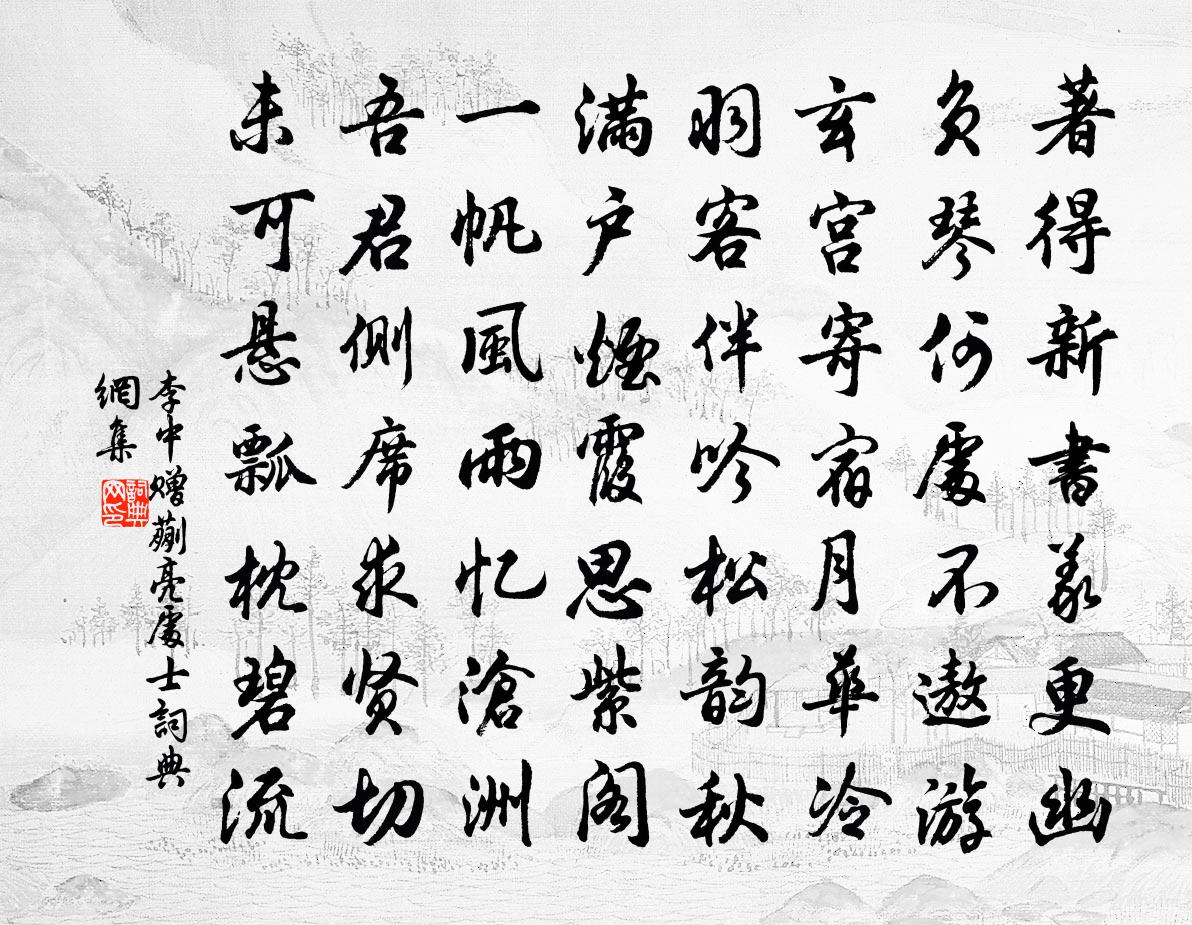 著得新書義更幽
負琴何處不遨游
玄宮寄宿月華冷
羽客伴吟松韵秋
滿户煙霞思紫阁
一帆風雨忆滄洲
吾君側席求贤切
未可悬瓢枕碧流
李中赠蒯亮處士詞典
網集
詞典
网印